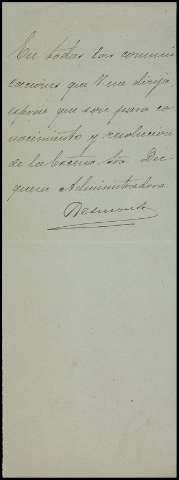 En todas las comuni
caciones que V. me dirija,
esprese que son para co
nocimiento y resolucion
de la Excma. Sra. Du
quesa Administradora